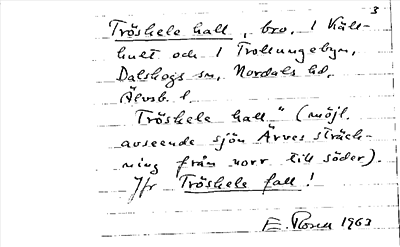 3
Tröskele hall, bro, 1 Käll-
hult och 1 Trollungebyn,
Dalskogs sn, Nordals hd,
Älvsb. l.
Tröskele hall" (möjl.
avseende sjön Ärves sträck-
ning från norr till söder).
Jfr Tröskele fall!
E. Rosell 1963